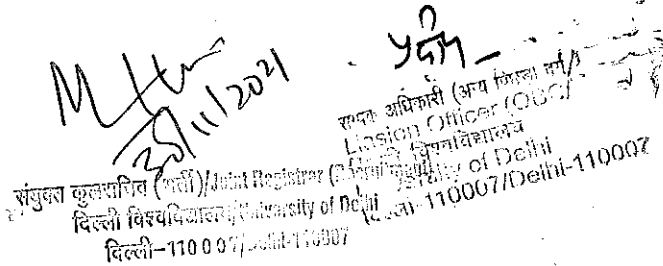 30/11/2021
संयुक्त कुलसचिव (भर्ती)/Joint Registrar (
दिल्ली विश्वविद्यालय/University of Delhi
दिल्ली-110007/Delhi-110007
सम्पर्क अधिकारी (अन्य पिछड़ा वर्ग)
Liasion Officer (OBC)
विश्वविद्यालय
University of Delhi
110007/Delhi-110007